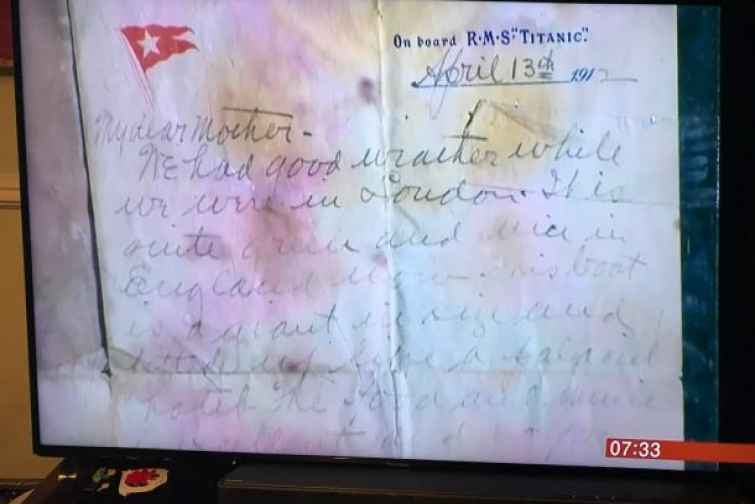 On board R·M·S "TITANIC".
April 13th 1912
My dear Mother -
We had good weather while
we were in London. It is
quite green and nice in
England now. This boat
is a giant in size and
fitted up like a palacial
hotel. The food and music
07:33